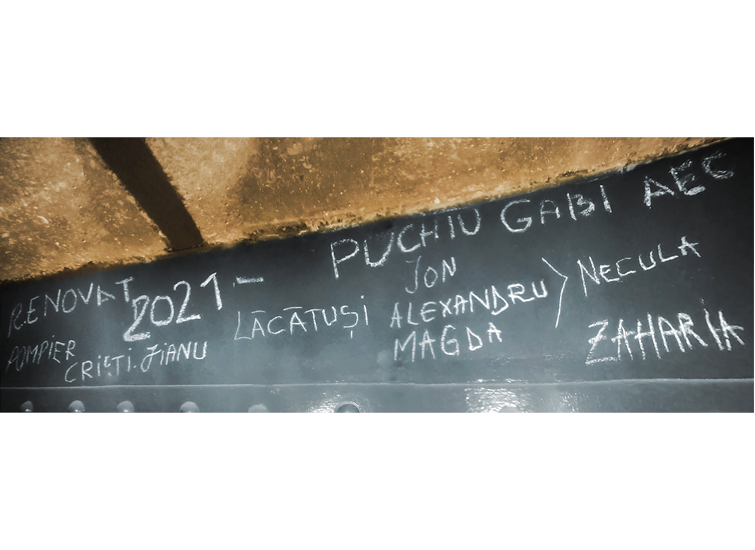 RENOVAT 2021 - PUCHIU GABI AEC
POMPIER
CRISTI JIANU
LĂCĂTUȘI
ION
ALEXANDRU
MAGDA
> NECULA
ZAHARIA